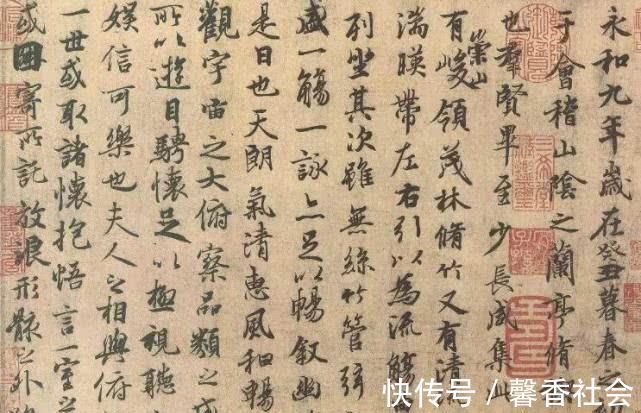 永和九年歲在癸丑暮春之
于會稽山陰之蘭亭脩
也羣賢畢至少長咸集
崇山
有峻領茂林脩竹又有清
湍暎帶左右引以為流觴
列坐其次雖無絲竹管弦
盛一觴一詠亦足以暢敘幽
是日也天朗氣清惠風和暢
觀宇宙之大俯察品類之
所以遊目騁懷足以極視聽
娛信可樂也夫人之相與俯
一世或取諸懷抱悟言一室之
或因寄所託放浪形骸之外
快传号／馨香社会